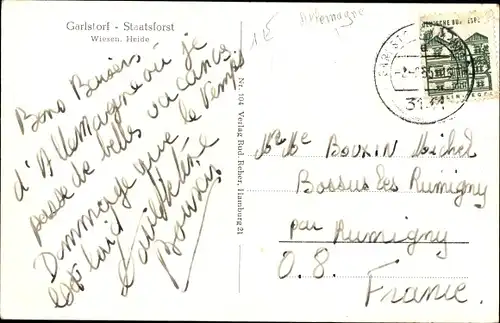 Garlstorf - Staatsforst
Wiesen, Heide
Bons Baisers
d'Allemagne où je
passe de belles vacances.
Dommage que le temps
est laid
Nr. 104 Verlag Rud. Reher, Hamburg 21
Allemagne
DEUTSCHE BUNDESPOST
ELLINGEN
Mr Me BOUXIN Michel
Bossus les Rumigny
par Rumigny
O. 8.
France.